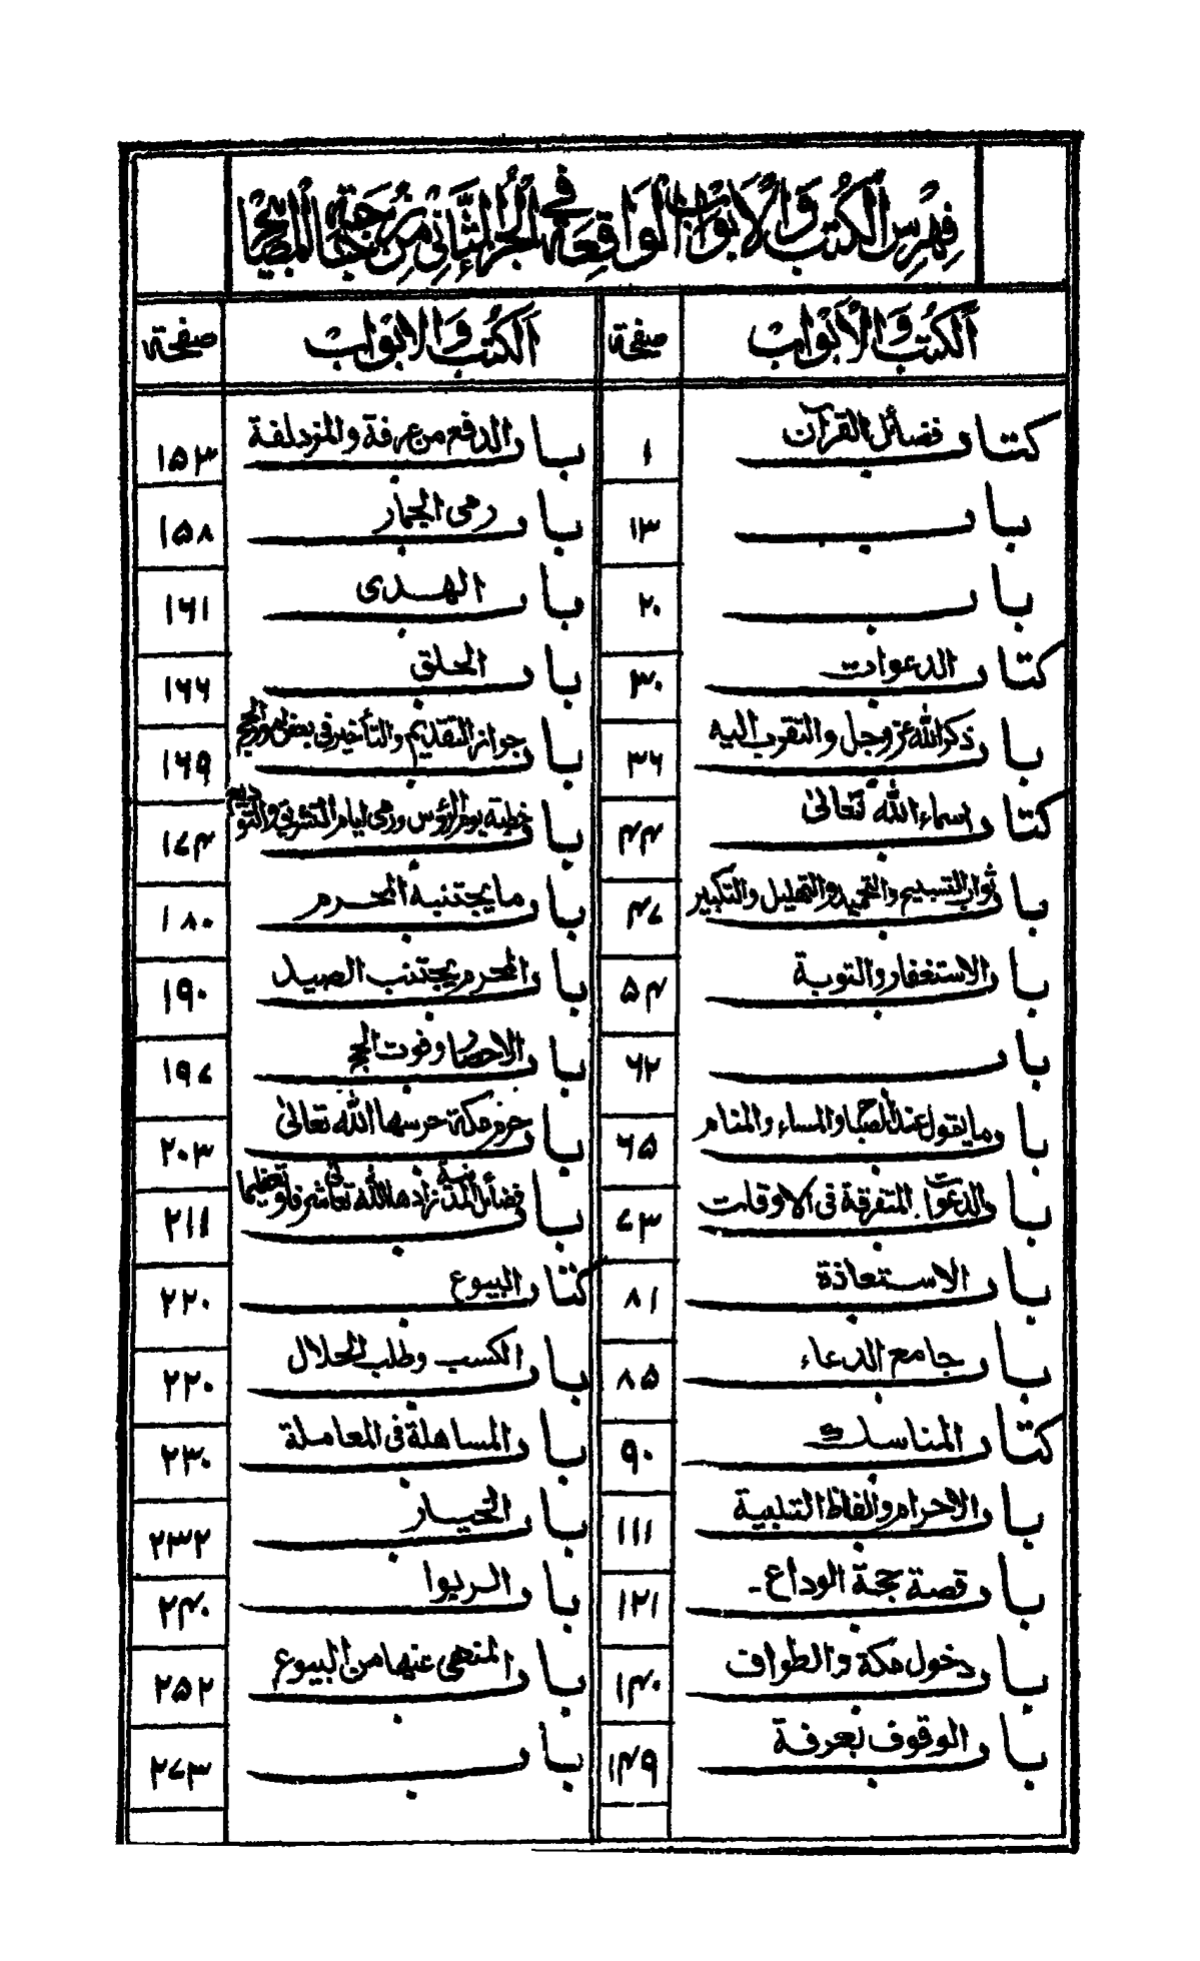 فهرس الكتب والابواب الواقعة في الجزء الثاني من زجاجة المصابيح
الكتب والابواب صفحة
كتاب فضائل القرآن ١
باب ١٣
باب ٢٠
كتاب الدعوات ٣٠
باب ذكر الله عز وجل والتقرب اليه ٣٦
كتاب اسماء الله تعالىٰ ٤٤
باب ثواب التسبيح والتحميد والتهليل والتكبير ٤٧
باب الاستغفار والتوبة ٥٤
باب ٦٢
باب ما يقول عند الصباح والمساء والمنام ٦٥
باب الدعوات المتفرقة فى الاوقات ٧٣
باب الاستعاذة ٨١
باب جامع الدعاء ٨٥
كتاب المناسك ٩٠
باب الاحرام والفاظ التلبية ١١١
باب قصة حجة الوداع - ١٢١
باب دخول مكة والطواف ١٤٠
باب الوقوف بعرفة ١٤٩
الكتب والابواب صفحة
باب الدفع من عرفة والمزدلفة ١٥٣
باب رمى الجمار ١٥٨
باب الهدى ١٦١
باب الحلق ١٦٦
باب جواز التقديم والتأخير فى بعض امور الحج ١٦٩
باب خطبة يوم الرؤس ورمى ايام التشريق والتوديع ١٧٤
باب ما يجتنبه المحرم ١٨٠
باب المحرم يجتنب الصيد ١٩٠
باب الاحصار وفوت الحج ١٩٧
باب حرم مكة حرسها الله تعالىٰ ٢٠٣
باب فضائل المدينة زادها الله تعالىٰ شرفا وتعظيما ٢١١
كتاب البيوع ٢٢٠
باب الكسب وطلب الحلال ٢٢٠
باب المساهلة فى المعاملة ٢٣٠
باب الخيار ٢٣٢
باب الربوا ٢٤٠
باب المنهى عنها من البيوع ٢٥٢
باب ٢٧٣